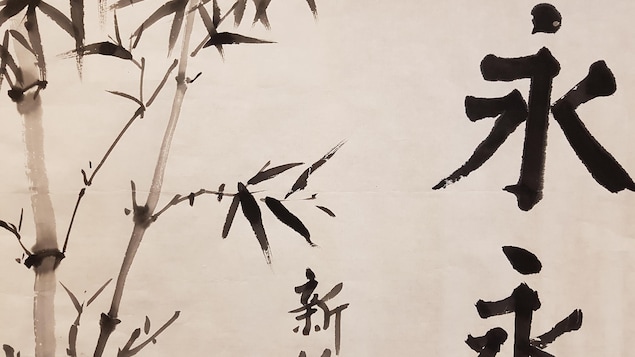 永
永
新